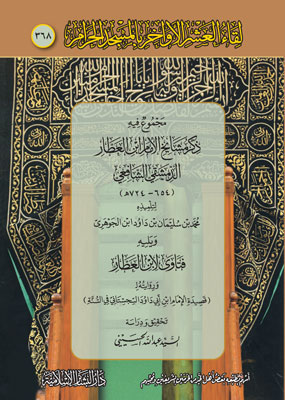 لقاء العشر الأواخر بالمسجد الحرام
٣٦٨
مجموع فيه
ذكر مشايخ الإمام ابن العطار
الدمشقي الشافعي
(٦٥٤ - ٧٢٤هـ)
لتلميذه
محمد بن سليمان بن داود ابن الجوهري
ويليه
فتاوى لابن العطار
وروايته
(قصيدة الإمام ابن أبي داود السجستاني في السنة)
تحقيق ودراسة
السيد عبدالله الحسيني
أسهم بطبعه بعض أهل الخير من الحرمين الشريفين ومحبيهم
دار البشائر الإسلامية